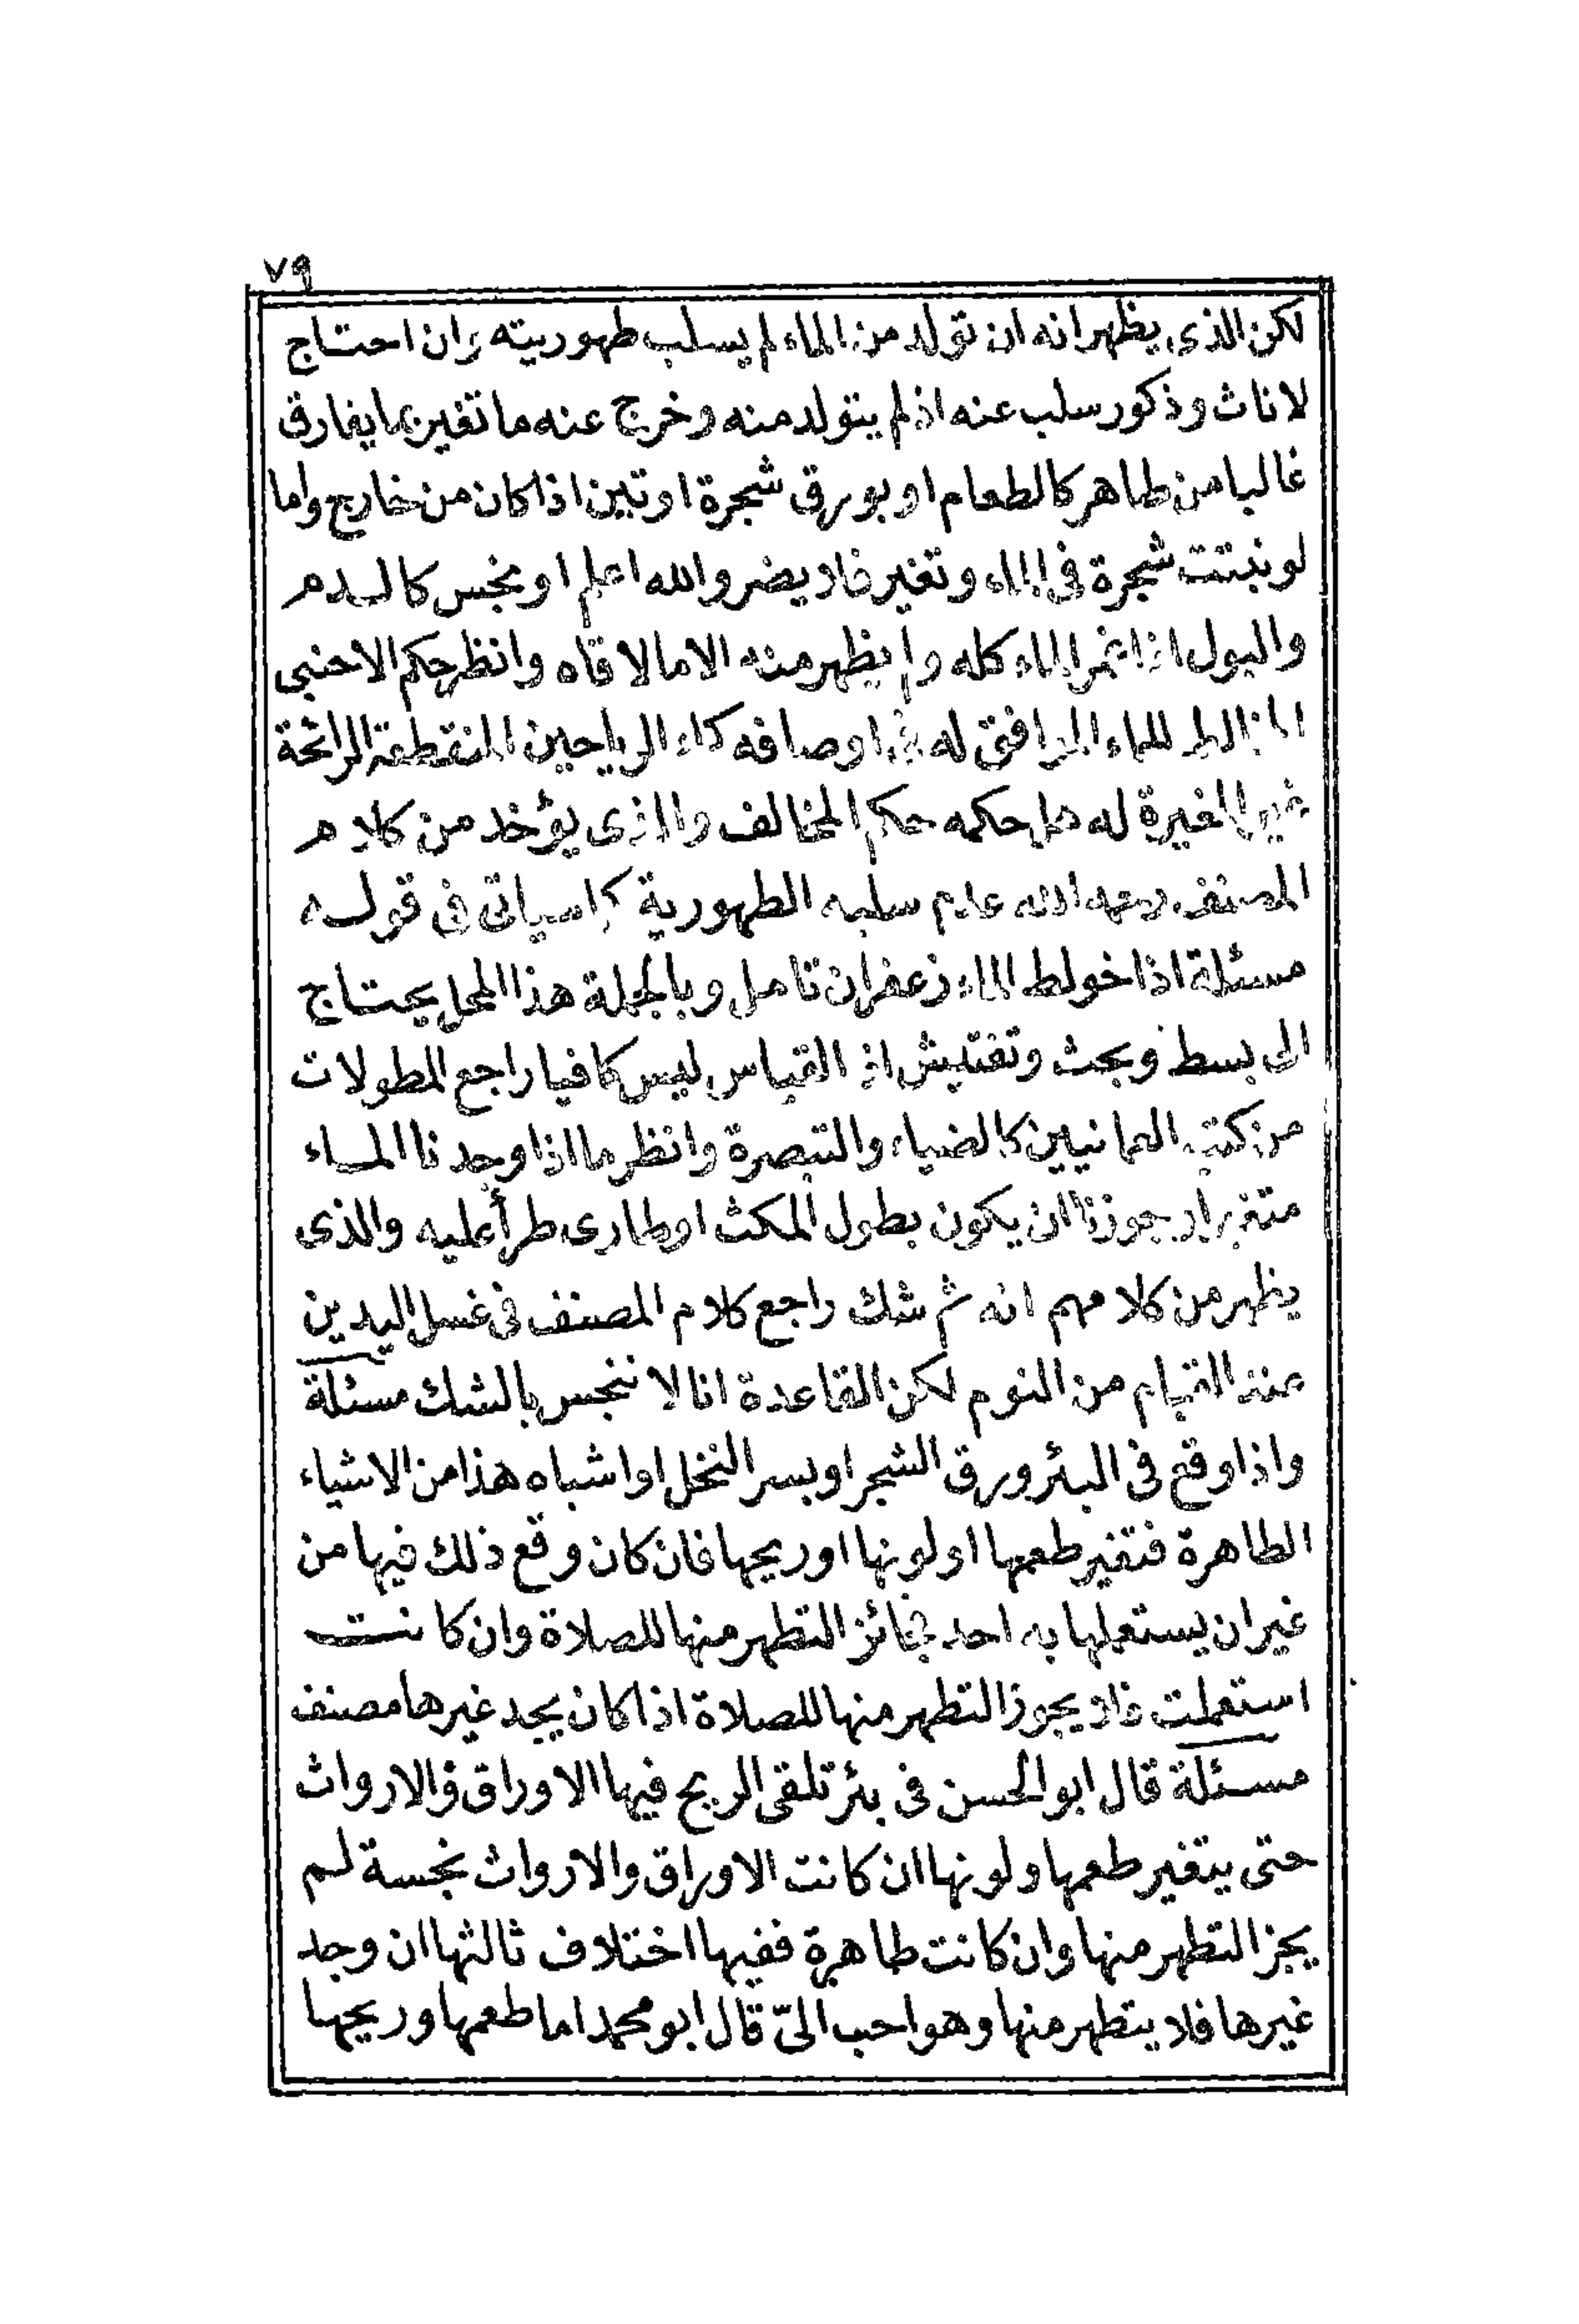 ٧٩
لكن الذى يظهر انه ان تولد من الماء لم يسلب طهوريته وان احتاج
لاناث وذكور سلب عنه اذ لم يتولد منه وخرج عنه ما تغير بما يفارق
غالبا من طاهر كالطعام او بورق شجرة او تبن اذا كان من خارج واما
لو نبتت شجرة فى الماء وتغير فلا يضر والله اعلم او نجس كالدم
والبول اذا غمر الماء كله ولم يظهر منه الا ما لاقاه وانظر حكم الاجنبى
المخالط للماء الموافق له فى اوصافه كماء الرياحين المنقطعة الرائحة
غير المغيرة له هل حكمه حكم المخالف والذى يؤخد من كلام
المصنف رحمه الله عدم سلبه الطهورية كما سياتى فى قوله
مسئلة اذا خولط الماء زعفران تامل وبالجملة هذا المحل يحتاج
الى بسط وبحث وتفتيش اذ القياس ليس كافيا راجع المطولات
من كتب العمانيين كالضياء والتبصرة وانظر ما اذا وجدنا الماء
متغيرا وجوزنا ان يكون بطول المكث او طارى طرأ عليه والذى
يظهر من كلامهم انه ثم شك راجع كلام المصنف فى غسل اليدين
عند القيام من النوم لكن القاعدة انا لا ننجس بالشك مسئلة
واذا وقع فى البئر ورق الشجر او بسر النخل او اشباه هذا من الاشياء
الطاهرة فتغير طعمها او لونها او ريحها فان كان وقع ذلك فيها من
غير ان يستعملها به احد فجائز التطهر منها للصلاة وان كانت
استعملت فلا يجوز التطهر منها للصلاة اذا كان يجد غيرها مصنف
مسئلة قال ابو الحسن فى بئر تلقى الريح فيها الاوراق والارواث
حتى يتغير طعمها ولونها ان كانت الاوراق والارواث نجسة لم
يجز التطهر منها وان كانت طاهرة ففيها اختلاف ثالثها ان وجد
غيرها فلا يتطهر منها وهو احب الىّ قال ابو محمد اما طعمها وريحها